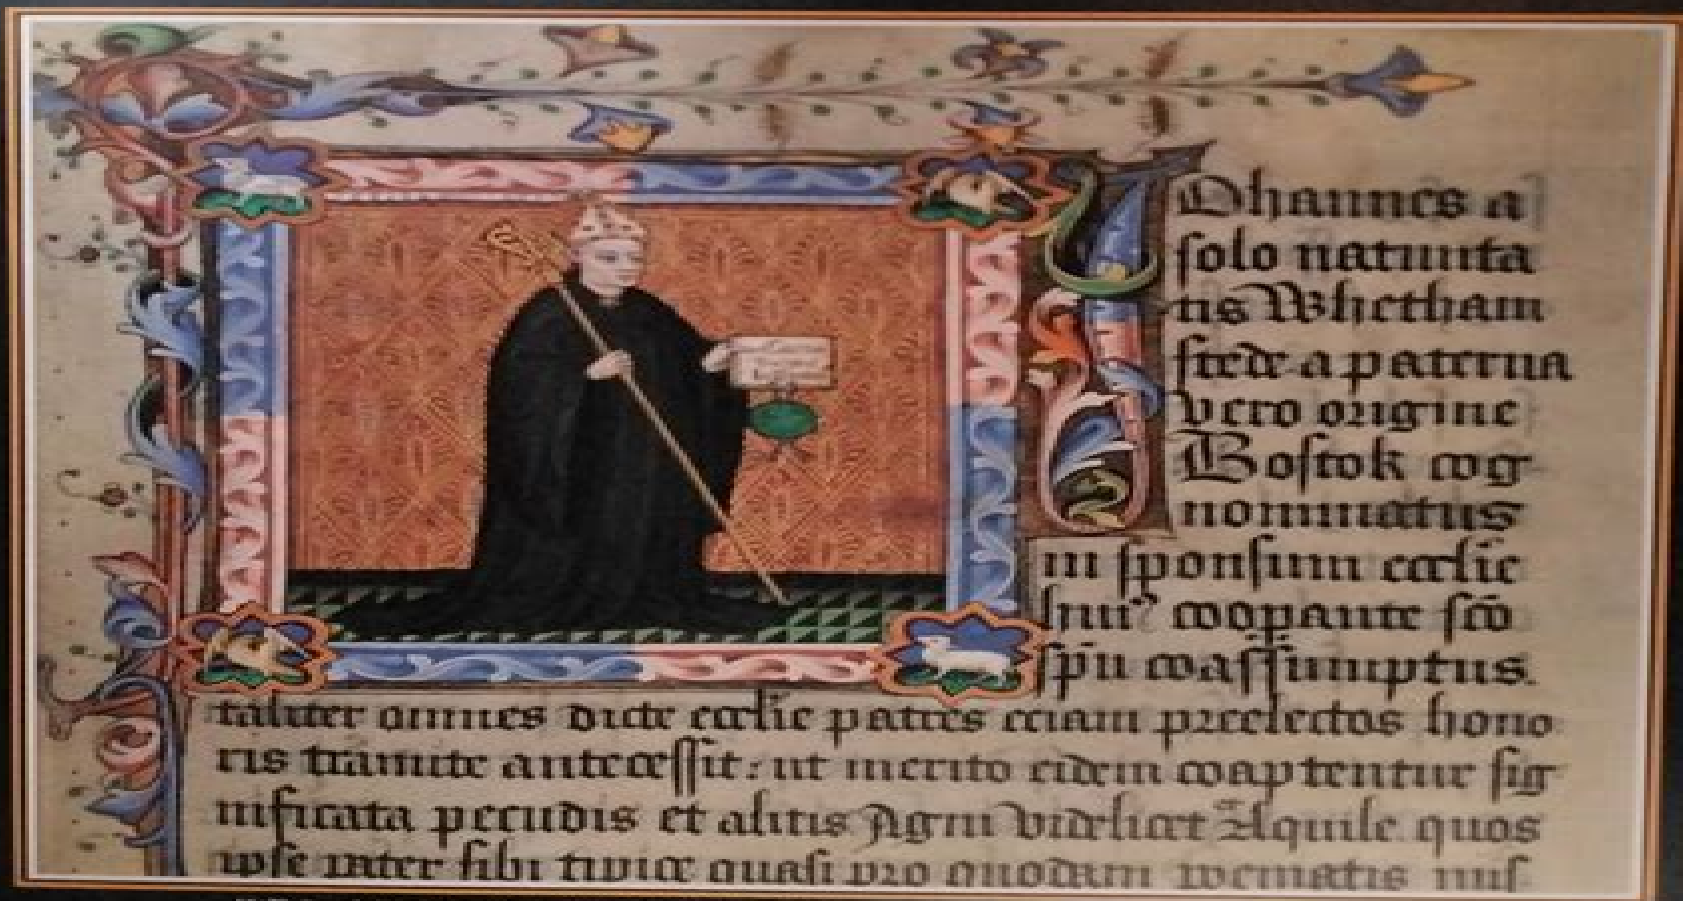 Johannes a
solo natiuita
tis Whetham
stede a paterna
vero origine
Bostok cog
nominatus
in sponsum ecclie
huiꝰ coopante sco
spu coassumptus.
taliter omnes dicte ecclie patres eciam preelectos hono
ris tramite antecessit: ut merito eidem coaptentur sig
nificata pecudis et alitis Agni videlicet Aquile quos
ipse inter sibi quasi pro quodam